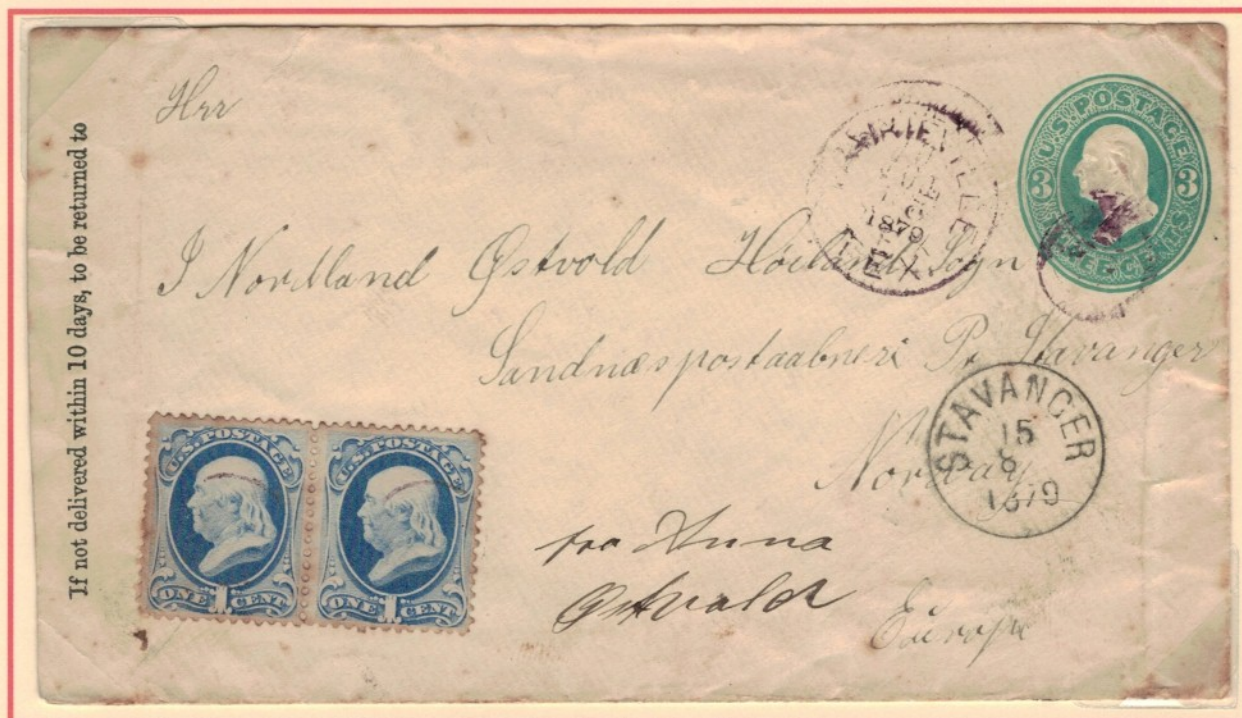 If not delivered within 10 days, to be returned to
Hrr
U.S. POSTAGE
3 3
CENTS
1879
TEX
I Nordland Østvold Høilands Sogn
Sandnæs postaabneri Pr Stavanger
Norway
STAVANGER
15
8
1879
U.S. POSTAGE
ONE 1 CENT
U.S. POSTAGE
ONE 1 CENT
fra Anna
Østvald
Europe